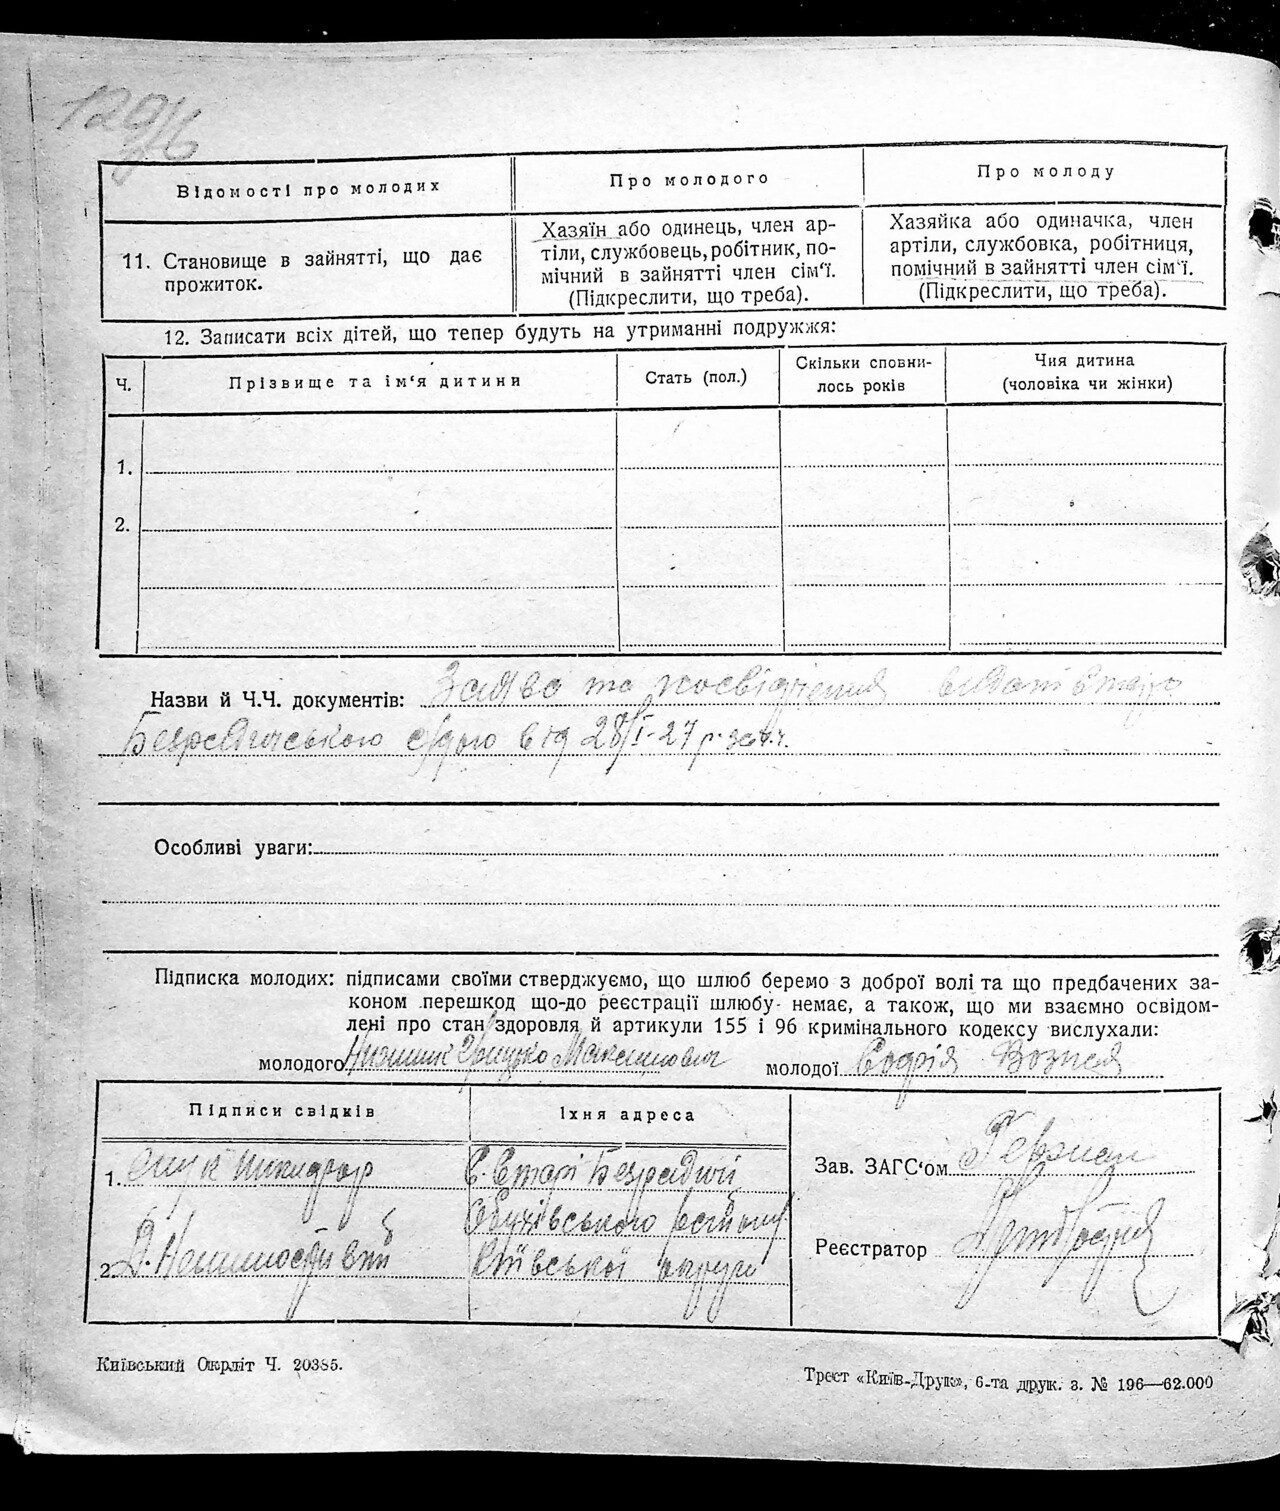 Відомості про молодих
Про молодого
Про молоду
11. Становище в зайнятті, що дає
прожиток.
Хазяїн або одинець, член ар-
тіли, службовець, робітник, по-
мічний в зайнятті член сім'ї.
(Підкреслити, що треба).
Хазяйка або одиначка, член
артіли, службовка, робітниця,
помічний в зайнятті член сім'ї.
(Підкреслити, що треба).
12. Записати всіх дітей, що тепер будуть на утриманні подружжя:
Ч.
Прізвище та ім'я дитини
Стать (пол.)
Скільки сповни-
лось років
Чия дитина
(чоловіка чи жінки)
1.
2.
Назви й Ч.Ч. документів: Заява та посвідчення видані
Безрадичською від 28/I-27 р.
Особливі уваги:
Підписка молодих: підписами своїми стверджуємо, що шлюб беремо з доброї волі та що предбачених за-
коном перешкод що-до реєстрації шлюбу немає, а також, що ми взаємно освідом-
лені про стан здоровля й артикули 155 і 96 кримінального кодексу вислухали:
молодого Грицько Максимович
молодої Софія
Підписи свідків
Їхня адреса
1.
С. Старі Безрадичі
Обухівського району
2.
Київської округи
Зав. ЗАГС'ом
Реєстратор
Київський Окрліт Ч. 20385.
Трест «Київ-Друк», 6-та друк. з. № 196—62.000